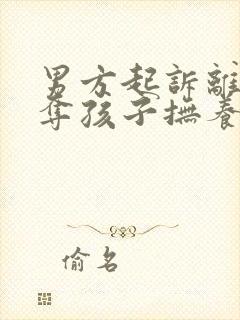 男方起訴離
奪孩子撫養
偷名